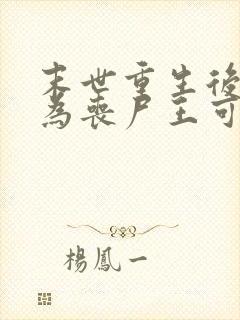 末世重生後
為喪尸王可
楊鳳一